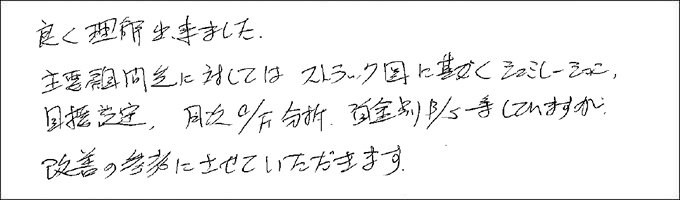 良く理解出来ました.
主要顧問先に対しては ストラック図に基づくシュミレーション,
目標設定, 月次C/F分析. 資金別B/S等していますが.
改善の参考にさせていただきます.